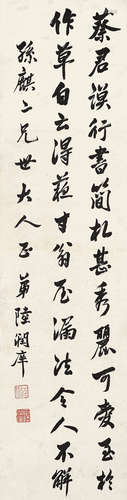 蔡君谟行書簡札甚秀麗可愛至於
作草自云得蘇才翁屋漏法令人不解
孫麒二兄世大人正 弟陸潤庠